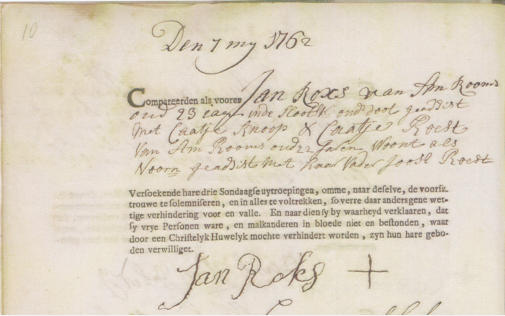 10
Den 7 my 1762
Compareerden als vooren Jan Roxs van Am Rooms
oud 23 Jaar inde Slootst oud doot geadsist
Met Caatje Knoop & Caatje Roest
Van Am Rooms oud 22 Jaren Woont als
Vooren geadsist Met haar Vader Joost Roest
Versoekende hare drie Sondaagse uytroepingen, omme, naar deselve, de voorsz.
trouwe te solemniseren, en in alles te voltrekken, so verre daar andersgene wet-
tige verhindering voor en valle. En naar dien sy by waarheyd verklaaren, dat
sy vrye Personen ware, en malkanderen in bloede niet en bestonden, waar
door een Christelyk Huwelyk mochte verhindert worden, zyn hun hare gebo-
den verwilliget.
Jan Roks +